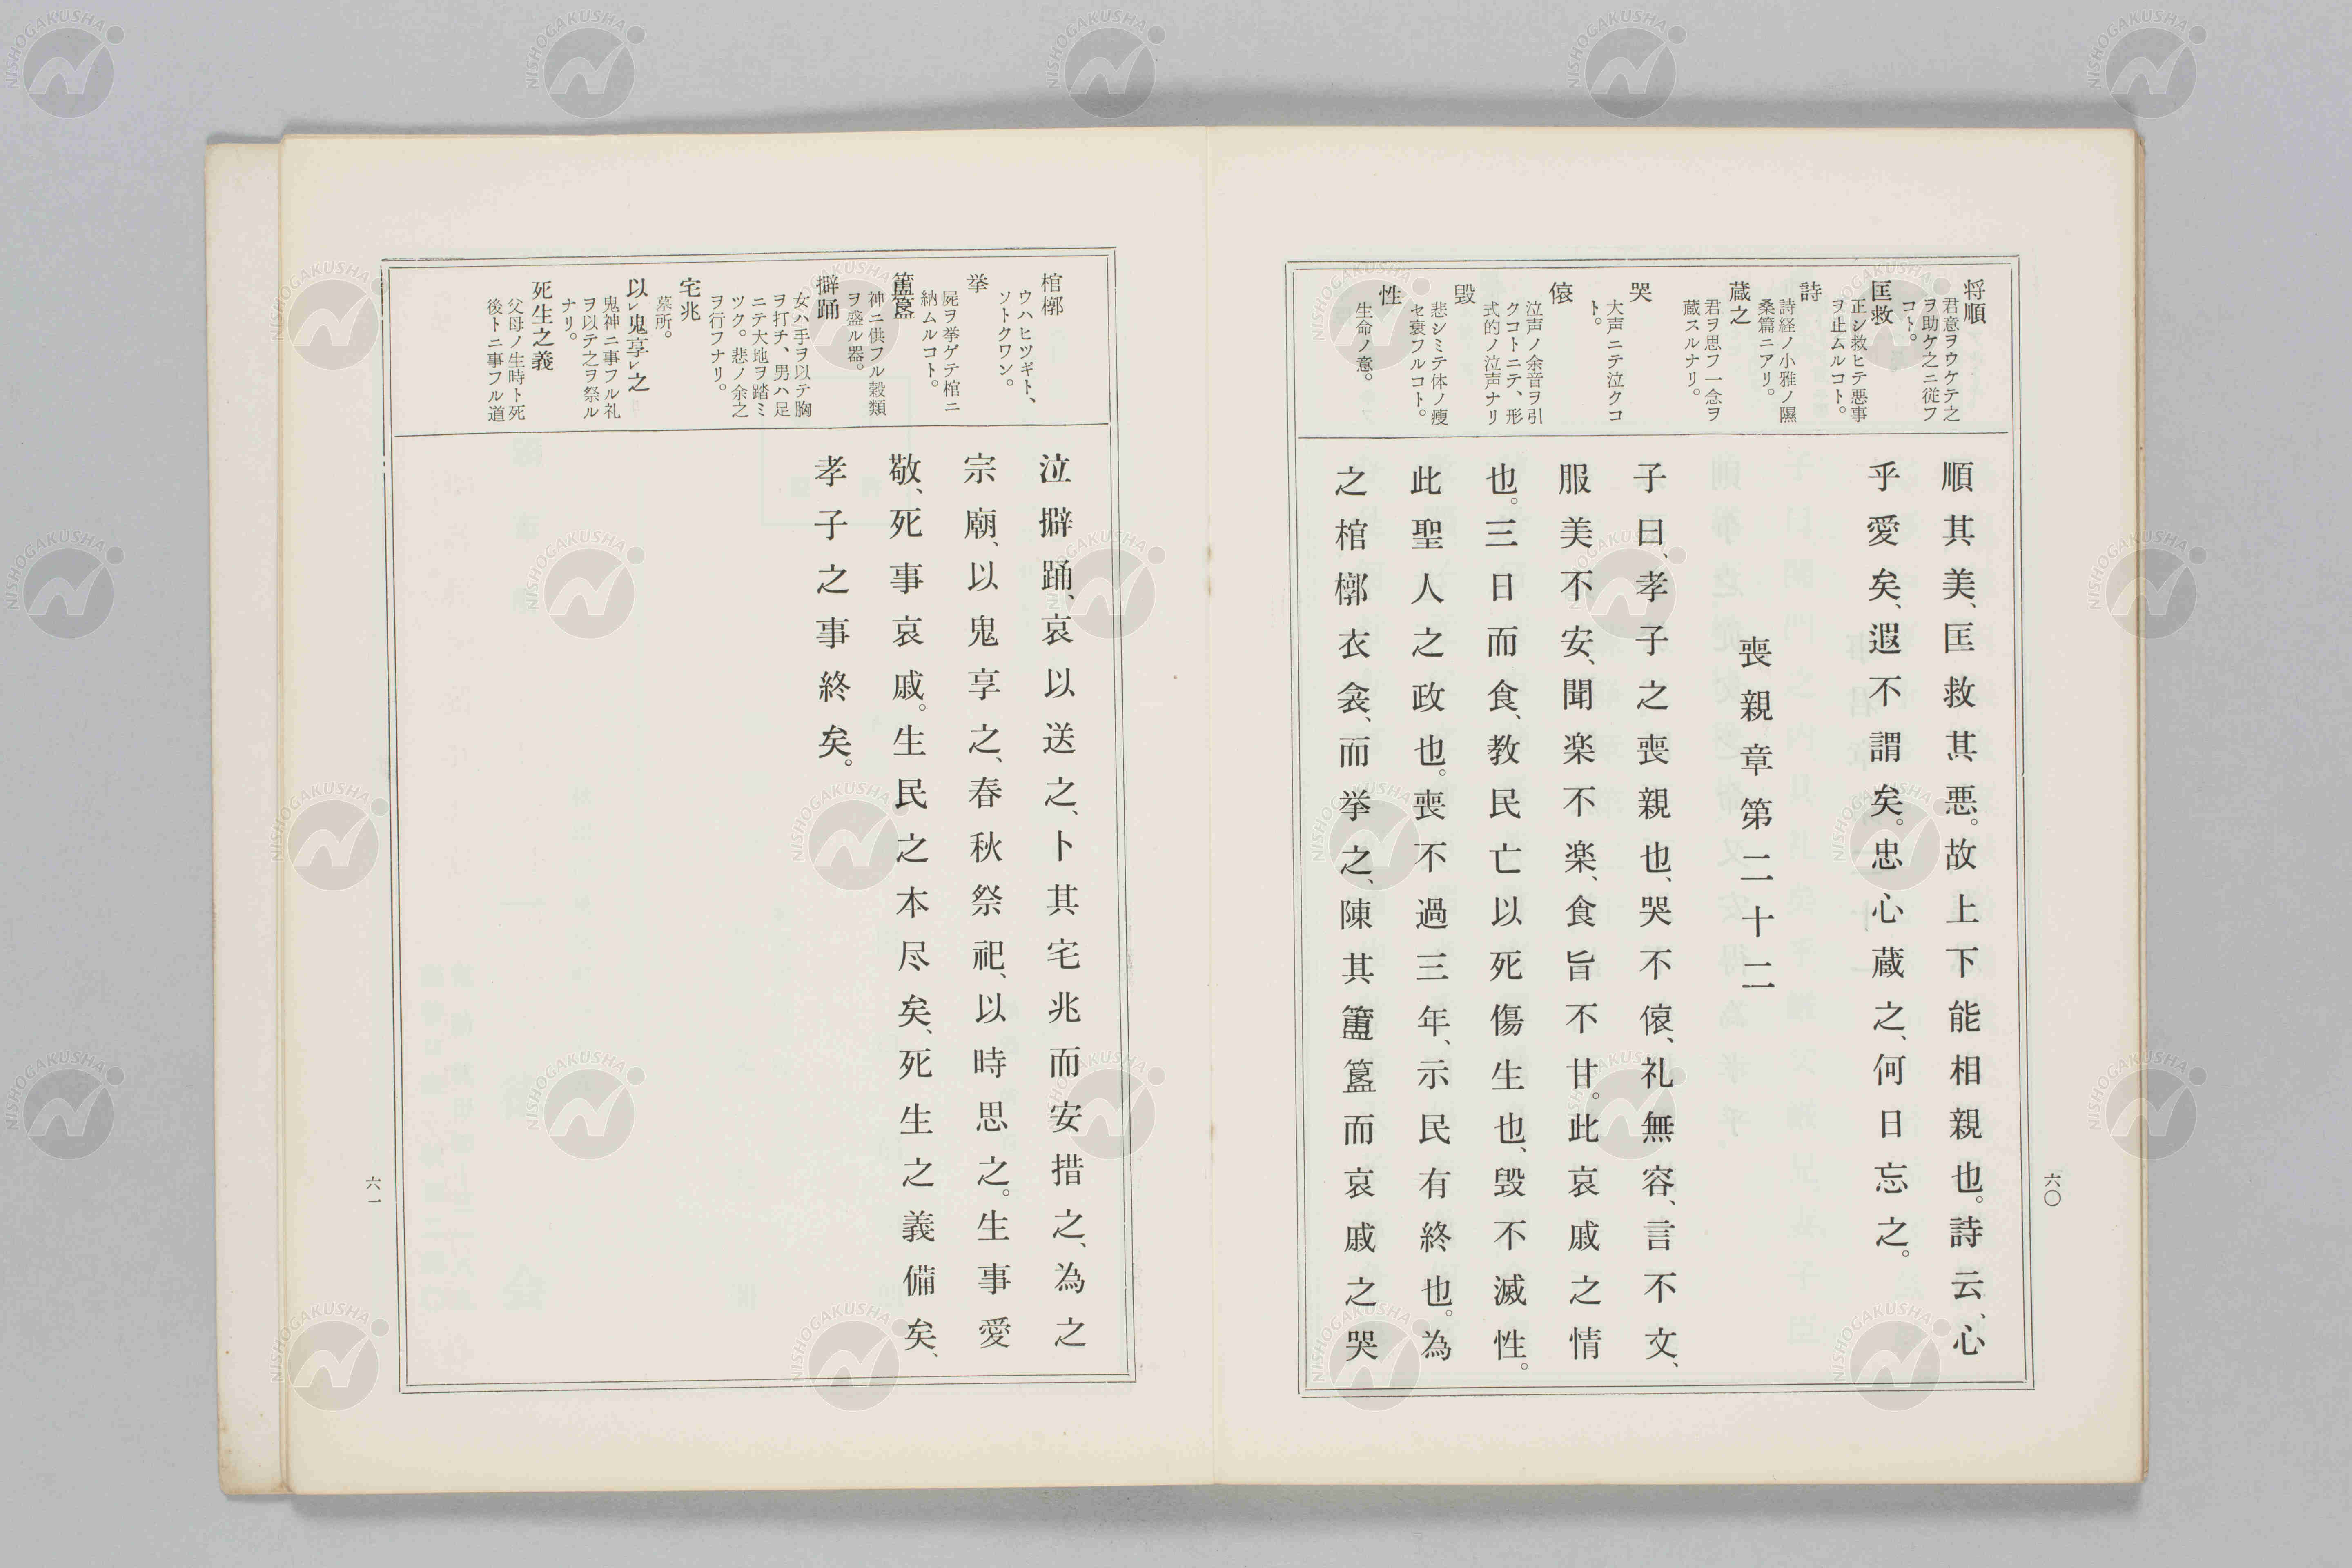 将順
君意ヲウケテ之
ヲ助ケ之ニ従フ
コト。
匡救
正シ救ヒテ悪事
ヲ止ムルコト。
詩
詩経ノ小雅ノ隰
桑篇ニアリ。
蔵之
君ヲ思フ一念ヲ
蔵スルナリ。
哭
大声ニテ泣クコ
ト。
偯
泣声ノ余音ヲ引
クコトニテ、形
式的ノ泣声ナリ
毀
悲シミテ体ノ痩
セ衰フルコト。
性
生命ノ意。
順其美、匡救其悪。故上下能相親也。詩云、心
乎愛矣、遐不謂矣。忠心蔵之、何日忘之。
喪親章第二十二
子曰、孝子之喪親也、哭不偯、礼無容、言不文、
服美不安、聞楽不楽、食旨不甘。此哀戚之情
也。三日而食、教民亡以死傷生也、毀不滅性。
此聖人之政也。喪不過三年、示民有終也。為
之棺槨衣衾、而挙之、陳其簠簋而哀戚之哭
六〇
棺槨
ウハヒツギト、
ソトクワン。
挙
屍ヲ挙ゲテ棺ニ
納ムルコト。
簠簋
神ニ供フル穀類
ヲ盛ル器。
擗踊
女ハ手ヲ以テ胸
ヲ打チ、男ハ足
ニテ大地ヲ踏ミ
ツク。悲ノ余之
ヲ行フナリ。
宅兆
墓所。
以レ鬼享レ之
鬼神ニ事フル礼
ヲ以テ之ヲ祭ル
ナリ。
死生之義
父母ノ生時ト死
後トニ事フル道
泣擗踊、哀以送之、卜其宅兆而安措之、為之
宗廟、以鬼享之、春秋祭祀、以時思之。生事愛
敬、死事哀戚。生民之本尽矣、死生之義備矣、
孝子之事終矣。
六一
NISHOGAKUSHA